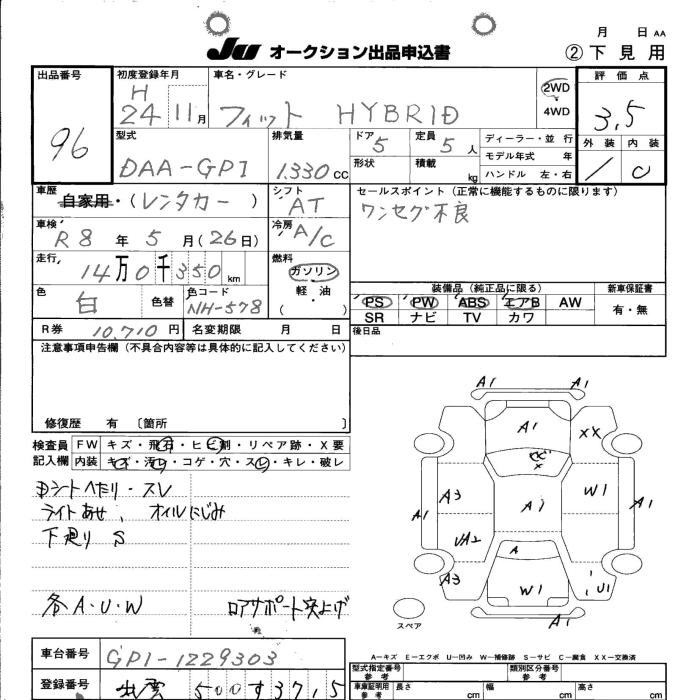 月 日 AA
JU オークション出品申込書 ②下見用
出品番号 96
初度登録年月 H 24 11月
車名・グレード フィット HYBRID
2WD
4WD
評価点 3.5
外装 内装
/ C
型式 DAA-GP1
排気量 1.330 cc
ドア 5
定員 5人
形状
積載 kg
ディーラー・並行
モデル年式 年
ハンドル 左・右
車歴 自家用・(レンタカー)
シフト AT
セールスポイント(正常に機能するものに限ります)
ワンセグ不良
車検 R8年 5月(26日)
冷房 A/C
走行 14万0千350km
燃料 ガソリン
軽・油
( )
色 白 色替
色コード NH-578
装備品(純正品に限る) 新車保証書
PS PW ABS エアB AW 有・無
SR ナビ TV カワ
R券 10,710円 名変期限 月 日
後日品
注意事項申告欄(不具合内容等は具体的に記入してください)
修復歴 有 〔箇所 〕
検査員 FW キズ・飛石・ヒビ割・リペア跡・X要
記入欄 内装 キズ・汚レ・コゲ・穴・スレ・キレ・破レ
ライトあせ、オイルにじみ
下廻り S
各A・U・W ロアサポート突上げ
A1 A1
A1 XX
X
A3 A1 W1
A1 A1
UA2 A
A3 W1 U1
A1
スペア
A-キズ E-エクボ U-凹み W-補修跡 S-サビ C-腐食 XX-交換済
車台番号 GP1-1229303
型式指定番号 参考
類別区分番号 参考
登録番号 出雲 500 す 3715
車庫証明用 参考 長さ cm 幅 cm 高さ cm